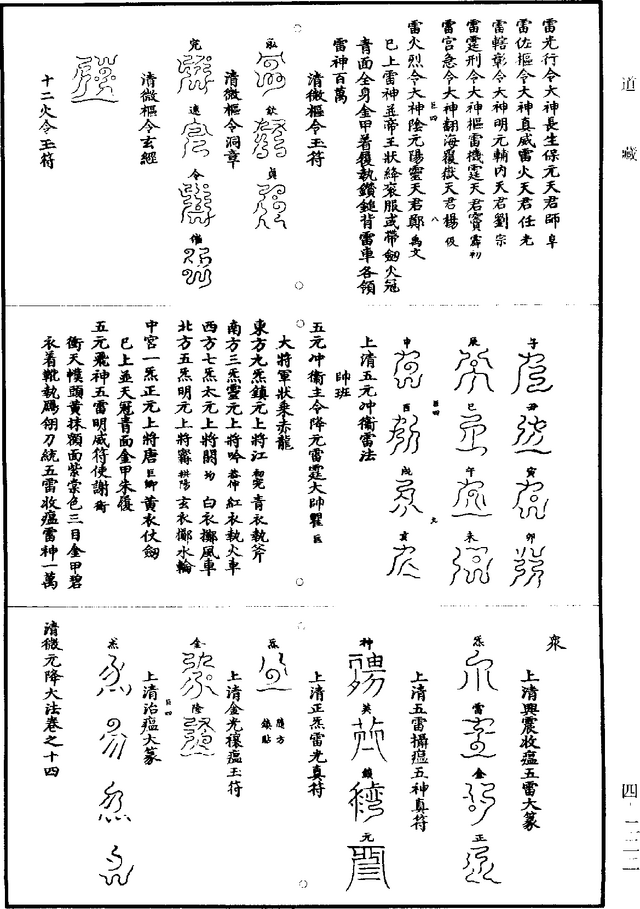 道藏
雷光行令大神長生保元天君師阜
雷佐樞令大神真威雷火天君任光
雷轄彰令大神明元輔內天君劉宗
雷霆刑令大神樞雷機霆天君竇霹初
雷宮急令大神翻海覆嶽天君楊伋
雷火烈令大神陰元陽靈天君鄭禹文
巳上雷神並帝王狀絳衮服或帶劒火冠
青面全身金甲着履執鑽鎚背雷車各領
雷神百萬
清微樞令玉符
清微樞令洞章
清微樞令玄經
十二火令玉符
子 丑 寅 卯
辰 巳 午 未
申 酉 戌 亥
上清五元冲衞雷法
帥班
五元冲衞主令降元雷霆大帥瞿
大將軍狀乗赤龍
東方九炁鎮元上將江 青衣執斧
南方三炁靈元上將吟 紅衣執火車
西方七炁太元上將閎 白衣擲風車
北方五炁明元上將 玄衣擲水輪
中宮一炁正元上將唐 黃衣仗劒
巳上並天冠青面金甲朱履
五元飛神五雷明威符使謝
衝天幞頭黃抹額面紫棠色三目金甲碧
衣着靴執鴟翎刀統五雷收瘟雷神一萬
衆
上清興震收瘟五雷大篆
炁 雷 金 正
上清五雷攝瘟五神真符
神 英 鎖 元
上清正炁雷光真符
炁
隨方鎮貼
上清金光禳瘟玉符
金 隆
上清治瘟大篆
清微元降大法卷之十四
四一二二